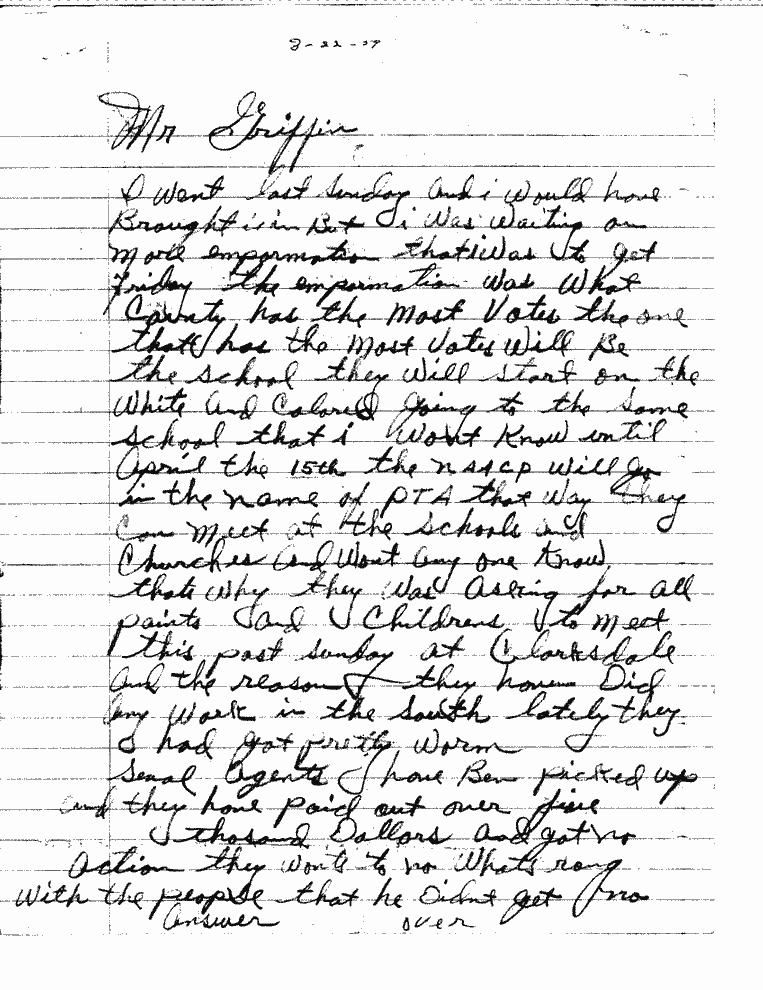 Mr Griffin
I Went last Sunday and i Would have
Brought it in But i Was Waiting on
more empormation that Was to get
Friday the empormation Was What
County has the Most Votes the one
that has the Most Votes Will Be
the school they Will Start on the
White and Colored going to the Same
school that i Wont Know until
April the 15th the NAACP Will go
in the name of PTA that Way they
Can Meet at the Schools and
Churches and Wont any one Know
thats Why they Was Asking for all
paints and Childrens to meet
this past Sunday at Clarksdale
and the reason they haven Did
any Work in the South lately they
had got pretty Worm
Seval Agents have Ben picked up
and they have paid out over five
thosand Dollars and got no
Action they Wonts to no Whats rong
With the people that he Didnt get no
Answer over